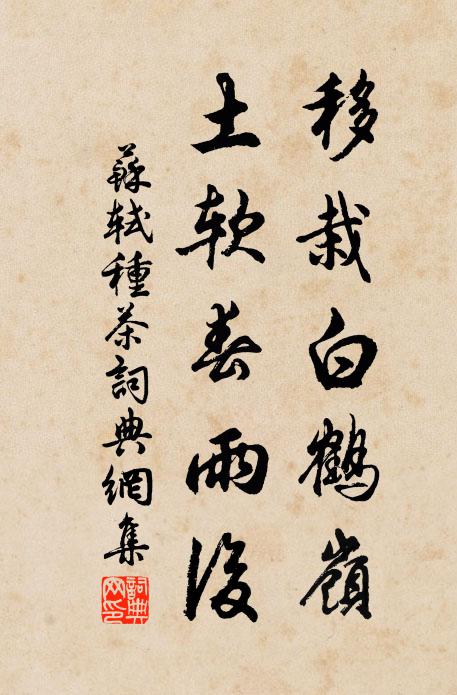 移栽白鹤嶺
土软春雨後
蘇軾種茶詞典網集
詞典网印